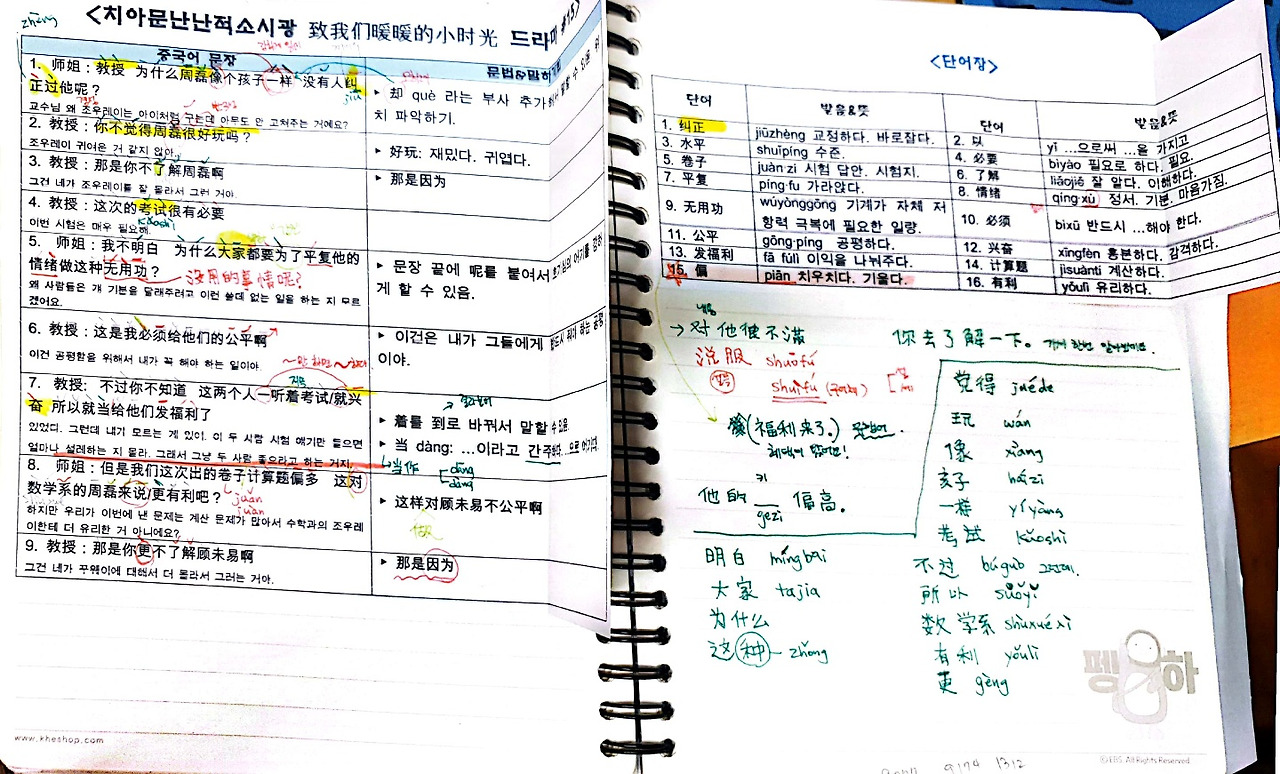 zhèng
<치아문난난적소시광 致我们暖暖的小时光 드라마
중국어 문장
문법&말하
1. 师姐：教授 为什么周磊像个孩子一样 没有人纠
正过他呢？
jiū
교수님 왜 조우레이는 아이처럼 구는데 아무도 안 고쳐주는 거예요?
▸ 却 què 라는 부사 추가
치 파악하기.
2. 教授：你不觉得周磊很好玩吗？
조우레이 귀여운 거 같지 않아
▸ 好玩: 재밌다. 귀엽다.
3. 教授：那是你不了解周磊啊
그건 네가 조우레이를 잘 몰라서 그런 거야.
▸ 那是因为
4. 教授：这次的考试很有必要
kǎoshì
이번 시험은 매우 필요해.
5. 师姐：我不明白 为什么大家都要为了平复他的
情绪做这种无用功？
没用的事情呢？
왜 사람들은 걔 기분을 달래주려고 이런 쓸데 없는 일을 하는 지 모르
겠어요.
▸ 문장 끝에 呢를 붙여서
게 할 수 있음.
6. 教授：这是我必须给他们的公平啊
이건 공평함을 위해서 내가 꼭 해야 하는 일이야.
▸ 이건 내가 그들에게
이야.
7. 教授：不过你不知道 这两个人一听着考试/就兴
奋 所以就当给他们发福利了
있었다. 그런데 내가 모르는 게 있어. 이 두 사람 시험 얘기만 들으면
얼마나 설레하는 지 몰라. 그래서 그냥 두 사람 좋으라고 하는 거지.
▸ 着를 到로 바꿔서 말할 수 있음.
▸ 当 dàng: …이라고 간주하다. 으로 여기다.
当作
dāng
dàng
8. 师姐：但是我们这次出的卷子计算题偏多 这对
数学系的周磊来说/更有利吧？
juǎn
juàn
하지만 우리가 이번에 낸 문제는 계산 문제가 많아서 수학과의 조우레
이한테 더 유리한 거 아니에요?
▸ 这样对顾未易不公平啊
9. 教授：那是你更不了解顾未易啊
그건 네가 꾸웨이이에 대해서 더 몰라서 그러는 거야.
▸ 那是因为
www.kheshop.com
<단어장>
단어 발음&뜻 단어 발음&뜻
1. 纠正 jiūzhèng 교정하다. 바로잡다. 2. 以 yǐ …으로써 …을 가지고
3. 水平 shuǐpíng 수준. 4. 必要 bìyào 필요로 하다. 필요.
5. 卷子 juàn·zi 시험 답안. 시험지. 6. 了解 liǎojiě 잘 알다. 이해하다.
7. 平复 píng·fu 가라앉다. 8. 情绪 qíng·xù 정서. 기분. 마음가짐.
9. 无用功 wúyònggōng 기계가 자체 저
항력 극복에 필요한 일량. 10. 必须 bìxū 반드시 …해야 한다.
11. 公平 gōng·píng 공평하다. 12. 兴奋 xīngfèn 흥분하다. 감격하다.
13. 发福利 fā fúlì 이익을 나눠주다. 14. 计算题 jìsuàntí 계산하다.
15. 偏 piān 치우치다. 기울다. 16. 有利 yǒulì 유리하다.
→ 对他很不满
你去了解一下。
说服 shuōfú
shuìfú
(福利来了.)
他的 키 偏高。
gèzi
明白 míngbai
大家 tajia
为什么
这种 - zhǒng
觉得 juéde
玩 wán
像 xiàng
孩子 háizi
一样 yíyàng
考试 kǎoshì
不过 búguò 그런데.
所以 suǒyǐ
数学系 shùxuéxì
有利 yǒulì
更 gèng
펭하
©EBS. All Rights Reserved.